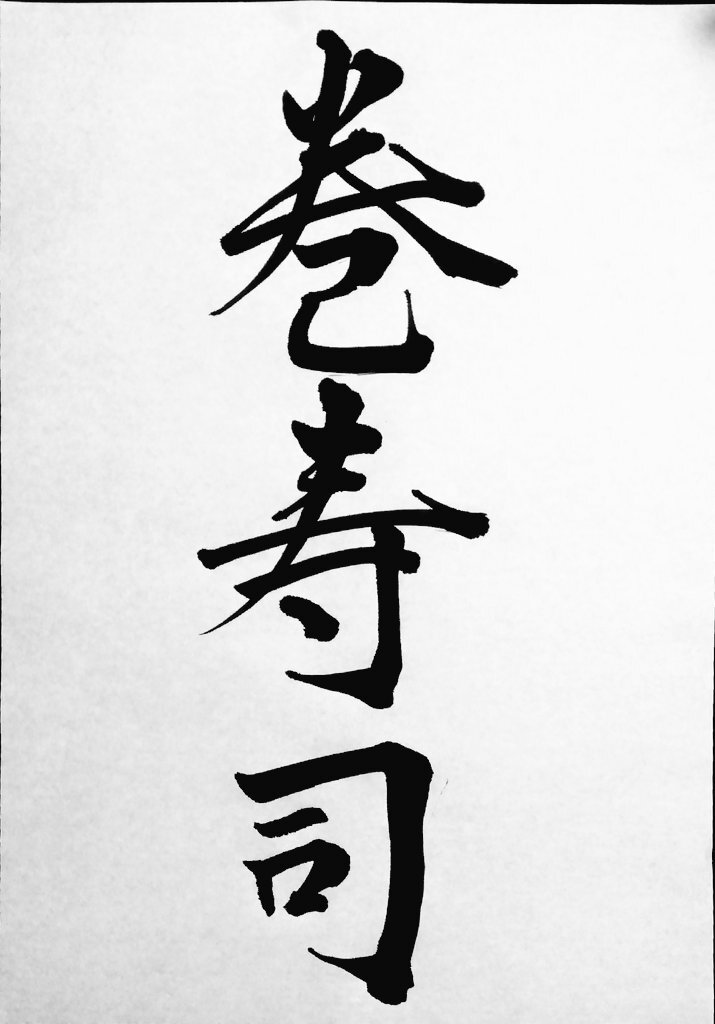 巻寿司